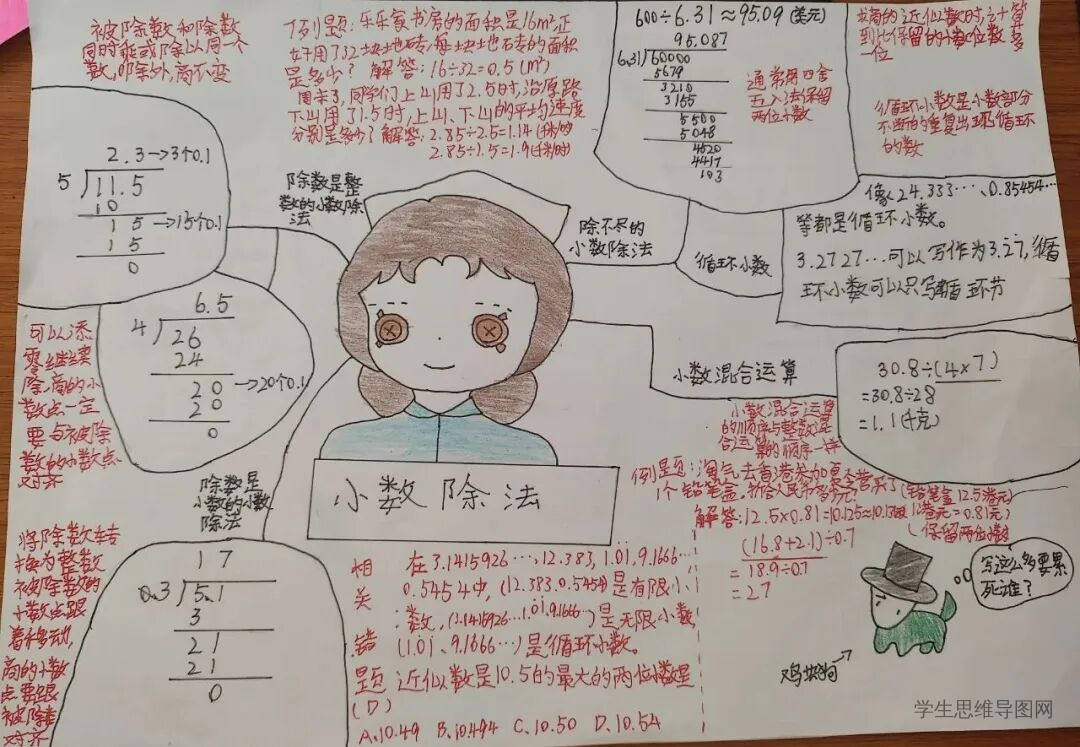 被除数和除数
同时乘或除以同一个
数,0除外,商不变
例题:乐乐家书房的面积是16m²,正
好用了32块地砖,每块地砖的面积
是多少? 解答:16÷32=0.5(m²)
周末了,同学们上山用了2.5时,沿原路
下山用了1.5时,上山、下山的平均速度
分别是多少?解答:2.85÷2.5=1.14(千米/时)
2.85÷1.5=1.9(千米/时)
600÷6.31≈95.09(美元)
95.087
6.31 60000
5679
3210
3155
5500
5048
4520
4417
103
通常用四舍
五入法保留
两位小数
求商的近似数时,计算
到比保留的小数位数多
一位
循环小数是小数部分
不断的重复出现循环
的数
2.3→3个0.1
5 11.5
10
15→15个0.1
15
0
除数是整
数的小数除
法
除不尽的
小数除法
循环小数
像24.333…、0.85454…
等都是循环小数。
3.2727…可以写作为3.2̇7̇,循
环小数可以只写循环节
6.5
4 26
24
20→20个0.1
20
0
可以添
零继续
除,商的小
数点一定
要与被除
数的小数点
对齐
小数混合运算
30.8÷(4×7)
=30.8÷28
=1.1(千克)
小数混合运算
的顺序与整数混
合运算的顺序一样
例题:淘气去香港参加夏令营买了
1个铅笔盒,折合人民币多少元?
(铅笔盒12.5港元)
1港元=0.81元)
解答:12.5×0.81=10.125≈10.13
(保留两位小数)
(16.8+2.1)÷0.7
=18.9÷0.7
=27
除数是
小数的小数
除法
小数除法
将除数转
换为整数
被除数的
小数点跟
着移动,
商的小数
点要跟
被除数
对齐
17
0.3 5.1
3
21
21
0
相关错题
在3.1415926…,12.383,1.01,9.1666…
0.5454中,(12.383、0.5454)是有限小
数,(3.1415926…1.̇01̇,9.1666…)是无限小数,
(1.̇01̇、9.1666…)是循环小数。
近似数是10.5的最大的两位小数是
(D)
A.10.49 B.10.494 C.10.50 D.10.54
写这么多要累
死谁?
鸡块狗
学生思维导图网